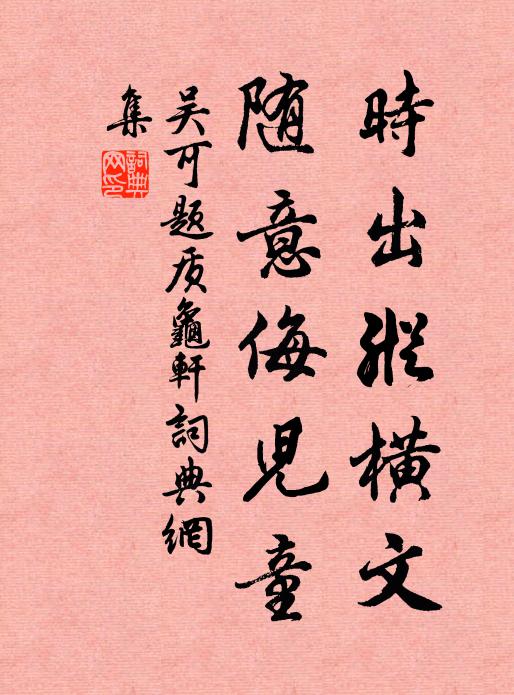 時出縱橫文
随意侮児童
吴可题质龜軒詞典網
集
詞典網印